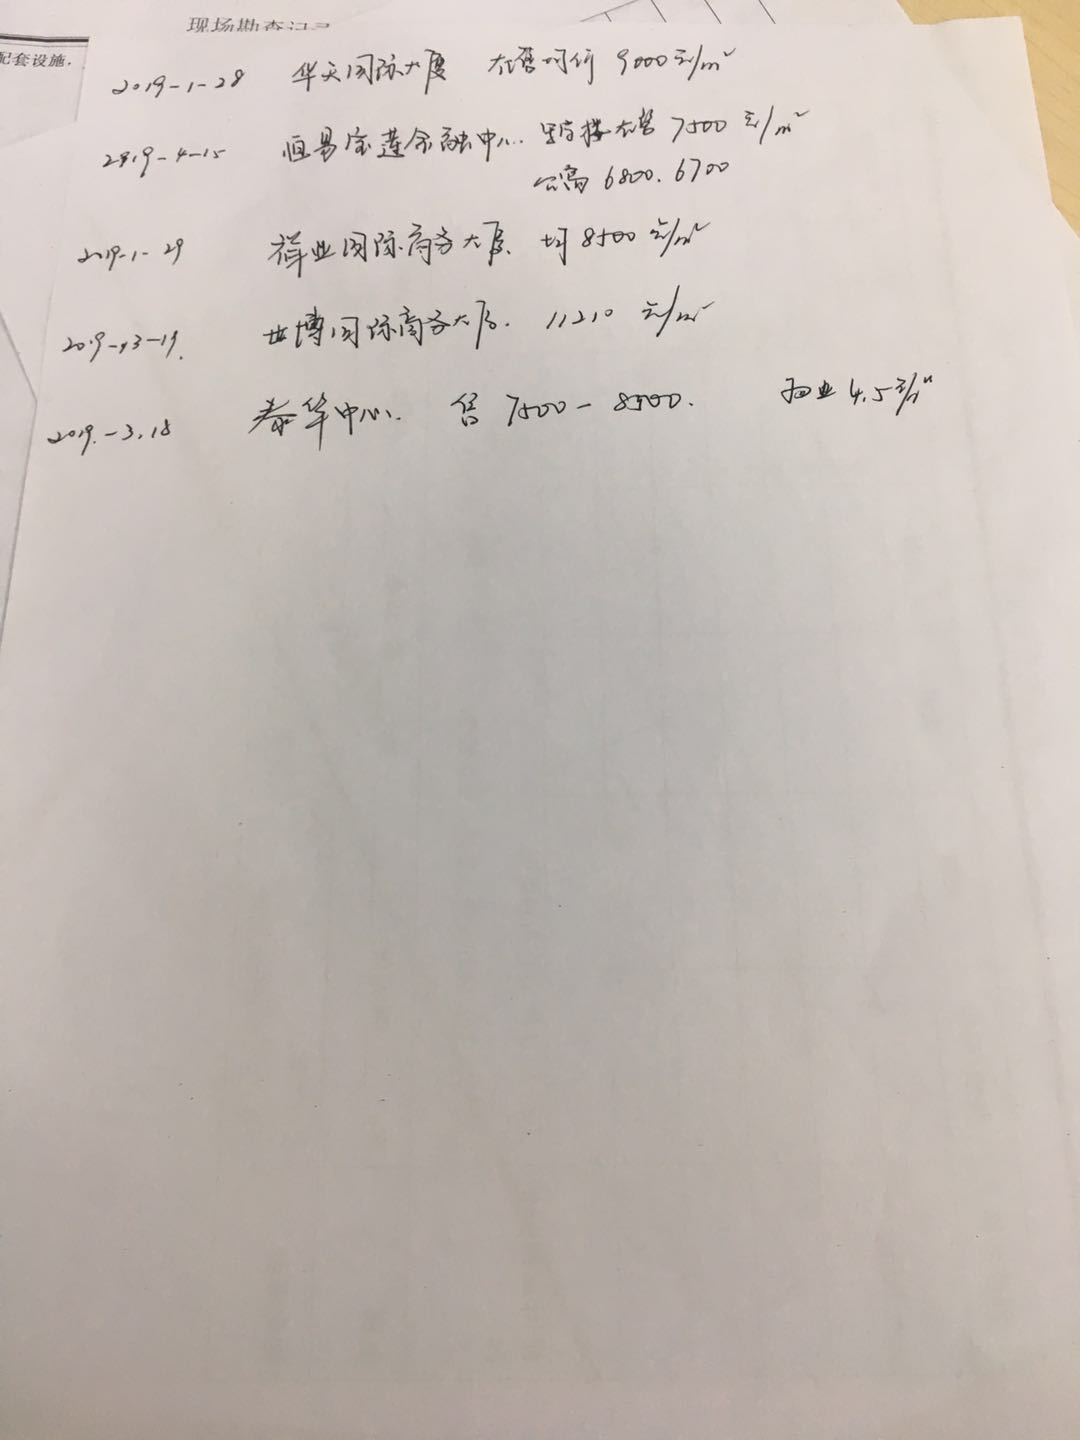 现场勘查记录
配套设施.
2019-1-28 华天国际大厦 在售均价 9000元/m²
2019-4-15 恒易宝莲金融中心. 写字楼在售 7500元/m²
公寓 6800. 6700
2019-1-29 祥业国际商务大厦. 均8500元/m²
2019-3-19. 世博国际商务大厦. 11210 元/m²
2019.-3.18 泰华中心. 售 7500-8500. 物业 4.5元/m²